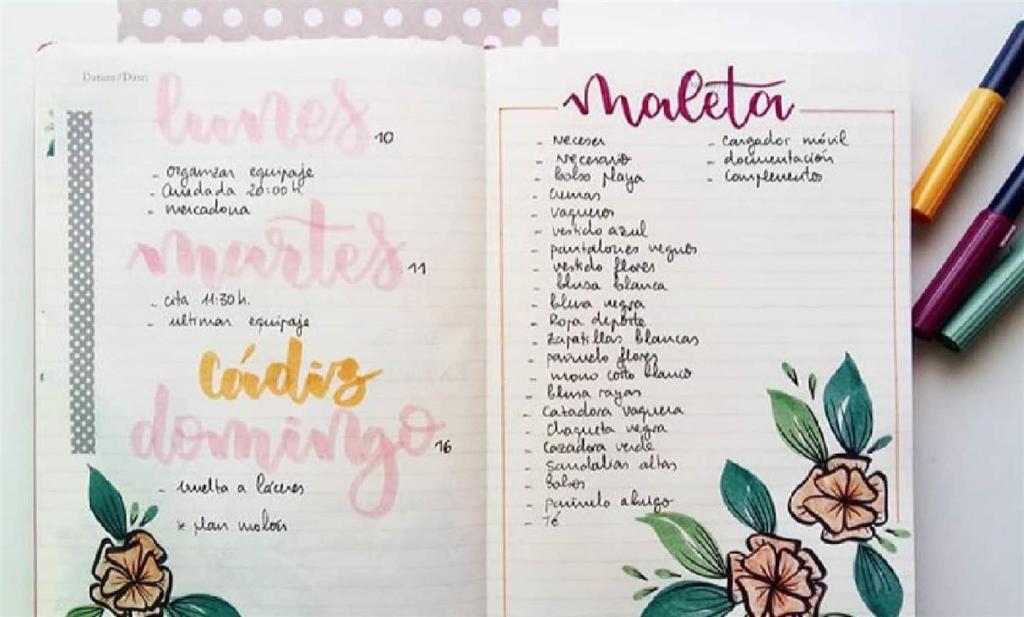 Datum/Date:
lunes 10
- organizar equipaje
- Quedada 20:00 h.
- mercadona
martes 11
- cita 11:30 h.
- ultimar equipaje
Cádiz
domingo 16
- vuelta a Cáceres
* plan molón
maleta
- neceser
- neceser
- bolso playa
- Cremas
- vaqueros
- vestido azul
- pantalones negros
- vestido flores
- blusa blanca
- blusa negra
- Ropa deporte
- Zapatillas blancas
- pañuelo flores
- mono corto blanco
- blusa rayas
- Cazadora vaquera
- Chaqueta negra
- Cazadora verde
- Sandalias altas
- Bolsos
- pañuelo abrigo
- Té
- cargador móvil
- documentación
- complementos